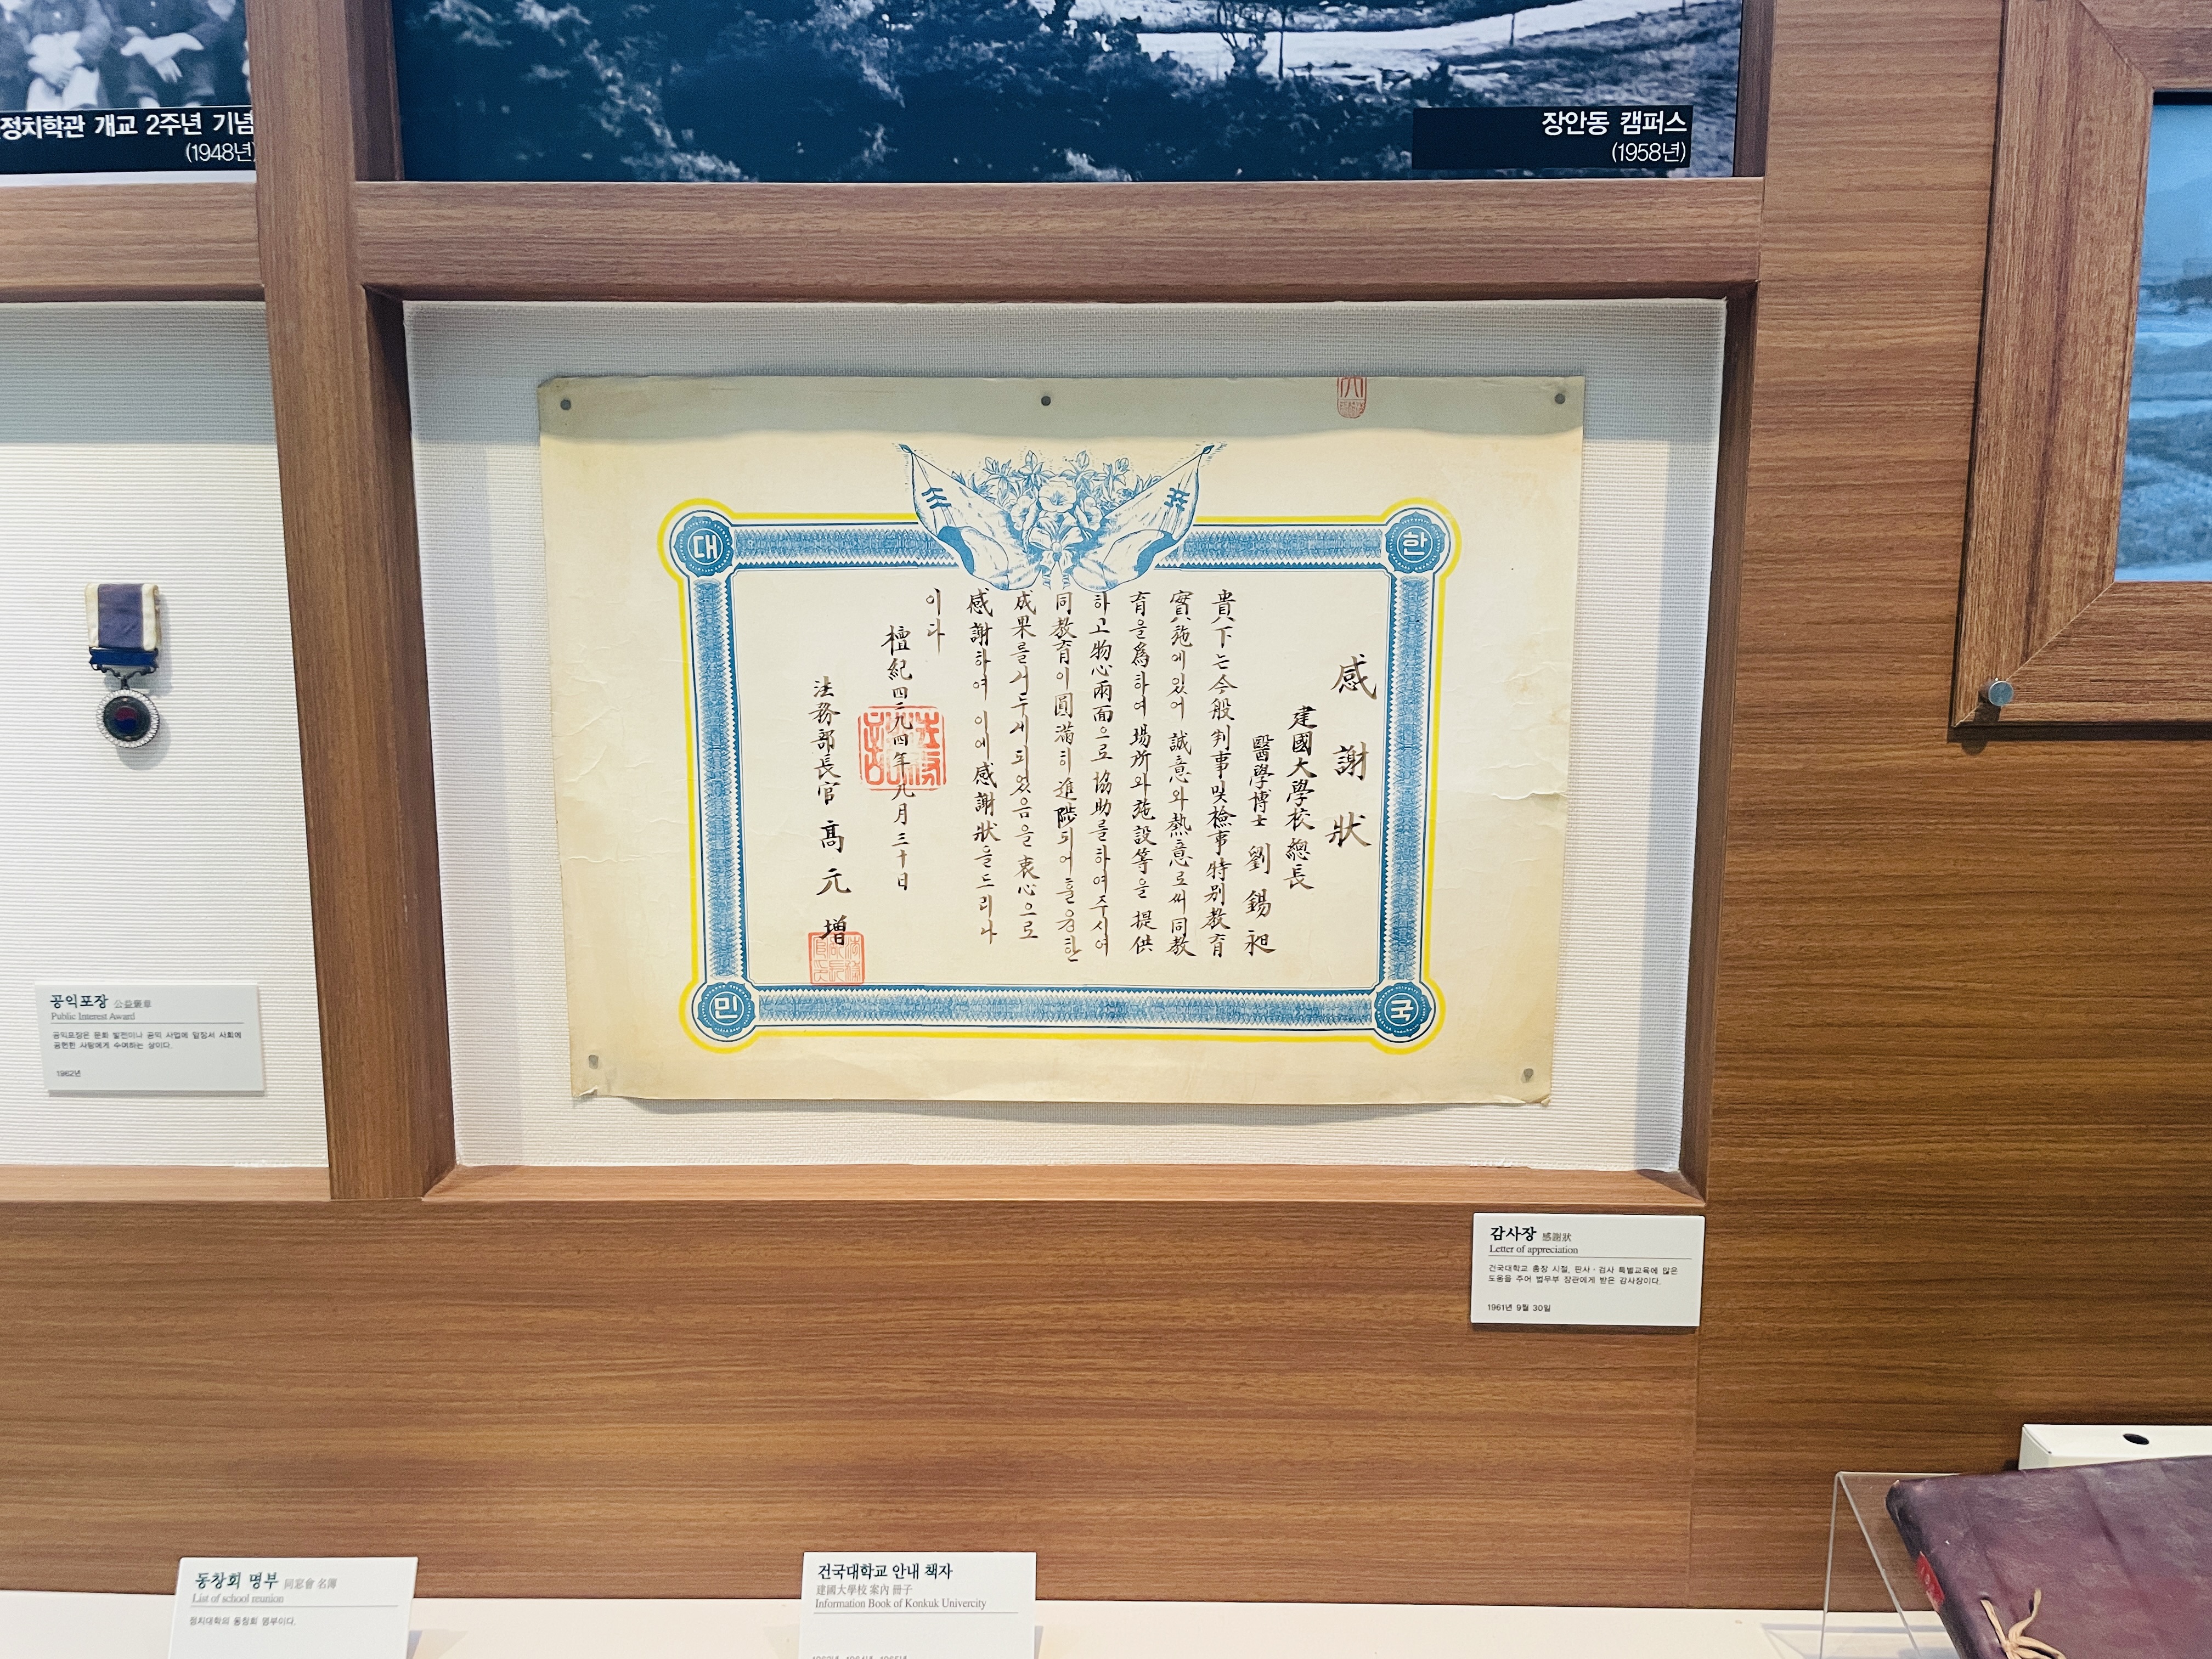 정치학관 개교 2주년 기념
(1948년)
장안동 캠퍼스
(1958년)
대
한
민
국
感謝狀
建國大學校總長
醫學博士 劉錫昶
貴下는 今般 判事 및 檢事特别教育
實施에 있어 誠意와 熱意로써 同教
育을 爲하여 場所와 施設等을 提供
하고 物心兩面으로 協助를 하여 주시여
同教育이 圓滿히 進陟되어 훌융한
成果를 거두게 되었음을 衷心으로
感謝하여 이에 感謝狀을 드리나
이다
檀紀四二九四年九月三十日
法務部長官 高元增
공익포장 公益褒章
Public Interest Award
공익포장은 문화 발전이나 공익 사업에 앞장서 사회에
공헌한 사람에게 수여하는 상이다.
1962년
감사장 感謝狀
Letter of appreciation
건국대학교 총장 시절, 판사·검사 특별교육에 많은
도움을 주어 법무부 장관에게 받은 감사장이다.
1961년 9월 30일
동창회 명부 同窓會 名簿
List of school reunion
정치대학의 동창회 명부이다.
건국대학교 안내 책자
建國大學校 案內 冊子
Information Book of Konkuk Univercity